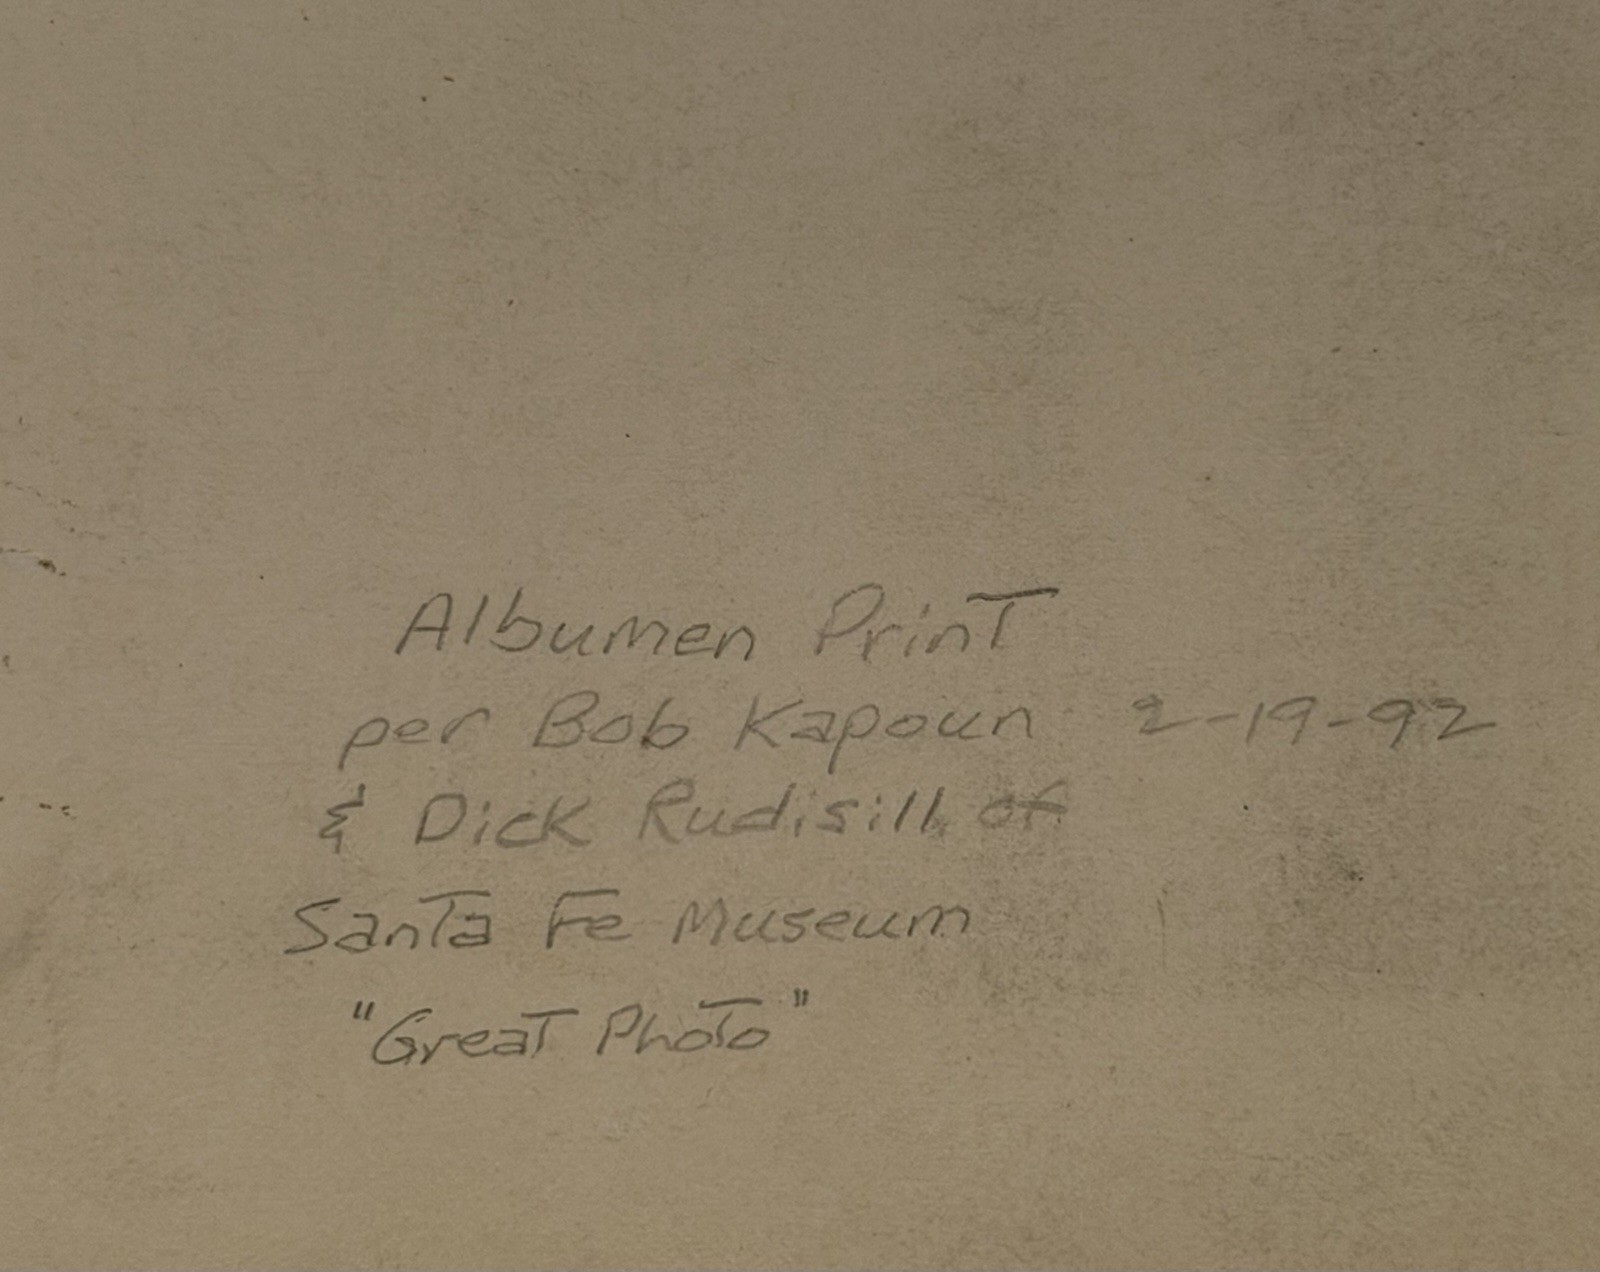 Albumen Print
per Bob Kapoun 2-19-92
& Dick Rudisill of
Santa Fe Museum
"Great Photo"